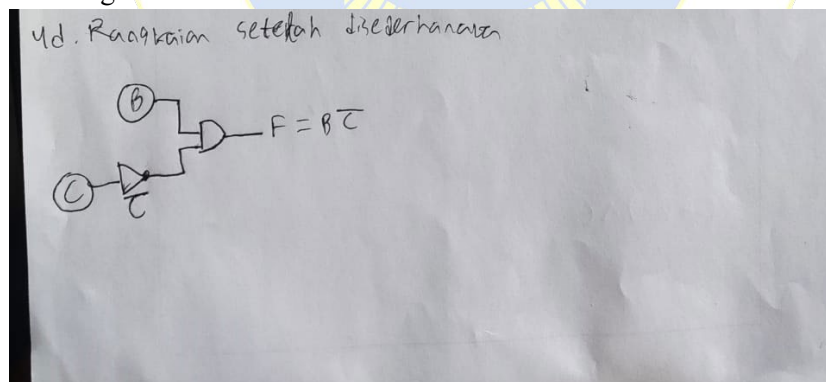 4d. Rangkaian setelah disederhanakan
B
F = B C̅
C
C̅